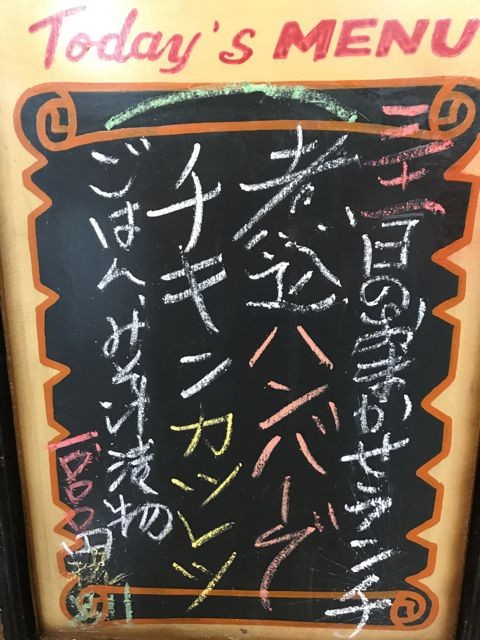 Today's MENU
三十一日のおまかせランチ
煮込ハンバーグ
チキンカツレツ
ごはん、みそ汁漬物